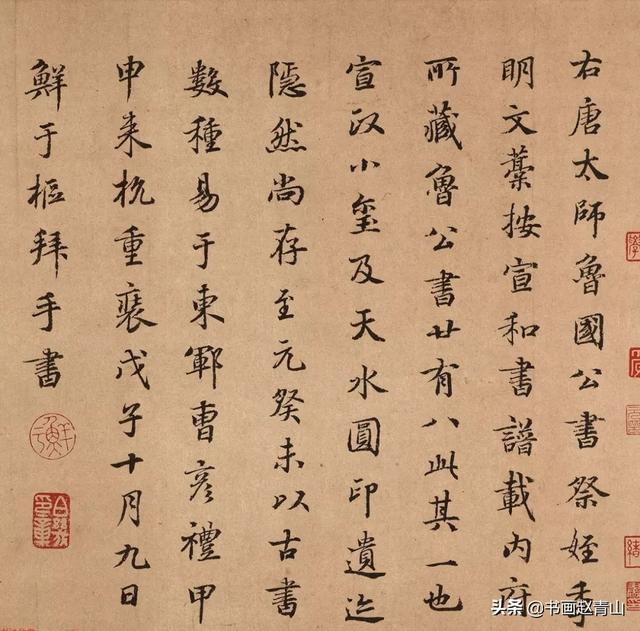 右唐太師魯國公書祭姪季
明文藁按宣和書譜載内府
所藏魯公書廿有八此其一也
宣政小璽及天水圓印遺迹
隱然尚存至元癸未以古書
數種易于東鄆曹彦禮甲
申来杭重裝戊子十月九日
鮮于樞拜手書
头条 @书画赵青山